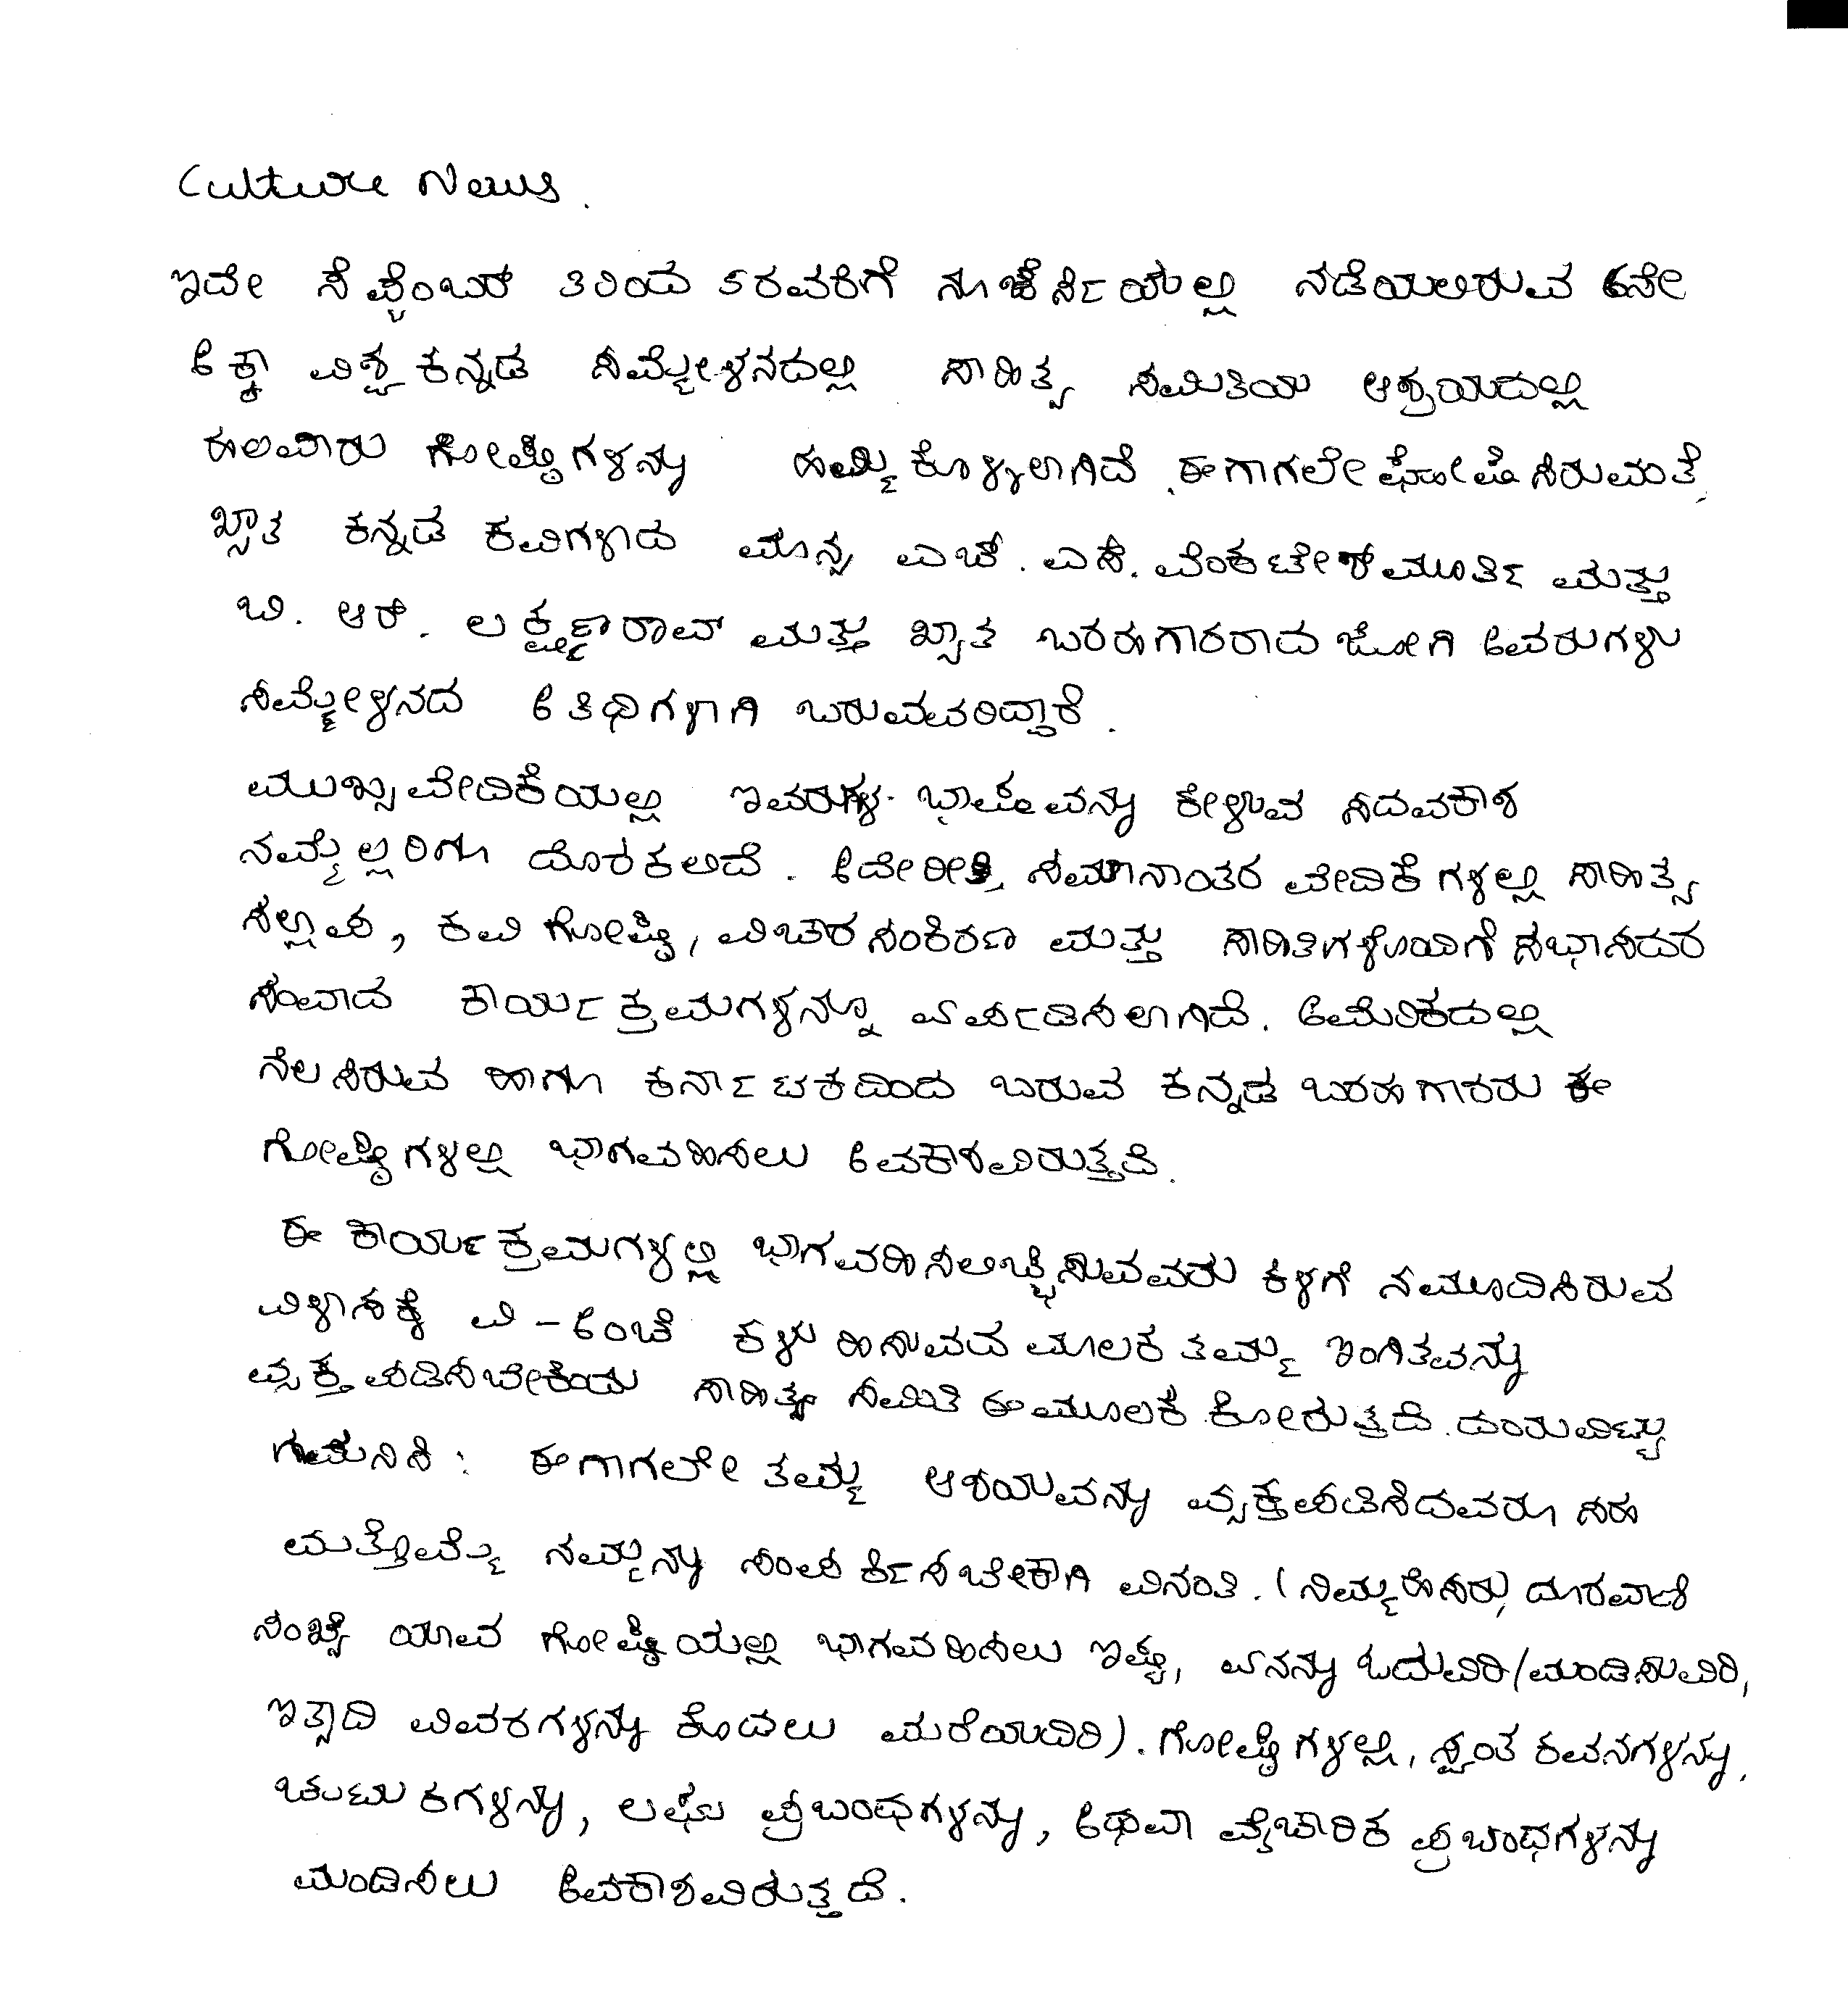 Culture News.
ಇದೇ ಸೆಪ್ಟೆಂಬರ್ 3ರಿಂದ 5ರವರೆಗೆ ನ್ಯೂಜೆರ್ಸಿಯಲ್ಲಿ ನಡೆಯಲಿರುವ 6ನೇ
ಅಕ್ಕಾ ವಿಶ್ವ ಕನ್ನಡ ಸಮ್ಮೇಳನದಲ್ಲಿ ಸಾಹಿತ್ಯ ಸಮಿತಿಯ ಆಶ್ರಯದಲ್ಲಿ
ಹಲವಾರು ಗೋಷ್ಠಿಗಳನ್ನು ಹಮ್ಮಿಕೊಳ್ಳಲಾಗಿದೆ. ಈಗಾಗಲೇ ಘೋಷಿಸಿರುವಂತೆ,
ಖ್ಯಾತ ಕನ್ನಡ ಕವಿಗಳಾದ ಮಾನ್ಯ ಎಚ್. ಎಸ್. ವೆಂಕಟೇಶ್ ಮೂರ್ತಿ ಮತ್ತು
ಬಿ. ಆರ್. ಲಕ್ಷ್ಮಣರಾವ್ ಮತ್ತು ಖ್ಯಾತ ಬರಹಗಾರರಾದ ಜೋಗಿ ಅವರುಗಳು
ಸಮ್ಮೇಳನದ ಅತಿಥಿಗಳಾಗಿ ಬರುವವರಿದ್ದಾರೆ.
ಮುಖ್ಯವೇದಿಕೆಯಲ್ಲಿ ಇವರುಗಳ ಭಾಷಣವನ್ನು ಕೇಳುವ ಸದವಕಾಶ
ನಮ್ಮೆಲ್ಲರಿಗೂ ದೊರಕಲಿದೆ. ಅದೇ ರೀತಿ, ಸಮಾನಾಂತರ ವೇದಿಕೆಗಳಲ್ಲಿ ಸಾಹಿತ್ಯ
ಸಲ್ಲಾಪ, ಕವಿಗೋಷ್ಠಿ, ವಿಚಾರ ಸಂಕಿರಣ ಮತ್ತು ಸಾಹಿತಿಗಳೊಂದಿಗೆ ಸಭಾಸದರ
ಸಂವಾದ ಕಾರ್ಯಕ್ರಮಗಳನ್ನೂ ಏರ್ಪಡಿಸಲಾಗಿದೆ. ಅಮೆರಿಕದಲ್ಲಿ
ನೆಲಸಿರುವ ಹಾಗೂ ಕರ್ನಾಟಕದಿಂದ ಬರುವ ಕನ್ನಡ ಬರಹಗಾರರು ಈ
ಗೋಷ್ಠಿಗಳಲ್ಲಿ ಭಾಗವಹಿಸಲು ಅವಕಾಶವಿರುತ್ತದೆ.
ಈ ಕಾರ್ಯಕ್ರಮಗಳಲ್ಲಿ ಭಾಗವಹಿಸಲಿಚ್ಛಿಸುವವರು ಕೆಳಗೆ ನಮೂದಿಸಿರುವ
ವಿಳಾಸಕ್ಕೆ ವಿ-ಅಂಚೆ ಕಳುಹಿಸುವದರ ಮೂಲಕ ತಮ್ಮ ಇಂಗಿತವನ್ನು
ವ್ಯಕ್ತಪಡಿಸಬೇಕೆಂದು ಸಾಹಿತ್ಯ ಸಮಿತಿ ಈ ಮೂಲಕ ಕೋರುತ್ತದೆ. ದಯವಿಟ್ಟು
ಗಮನಿಸಿ: ಈಗಾಗಲೇ ತಮ್ಮ ಆಶಯವನ್ನು ವ್ಯಕ್ತಪಡಿಸಿದವರೂ ಸಹ
ಮತ್ತೊಮ್ಮೆ ನಮ್ಮನ್ನು ಸಂಪರ್ಕಿಸಬೇಕಾಗಿ ವಿನಂತಿ. (ನಿಮ್ಮ ಹೆಸರು, ದೂರವಾಣಿ
ಸಂಖ್ಯೆ ಯಾವ ಗೋಷ್ಠಿಯಲ್ಲಿ ಭಾಗವಹಿಸಲು ಇಷ್ಟ, ಏನನ್ನು ಓದುವಿರಿ/ಮಂಡಿಸುವಿರಿ,
ಇತ್ಯಾದಿ ವಿವರಗಳನ್ನು ಕೊಡಲು ಮರೆಯದಿರಿ). ಗೋಷ್ಠಿಗಳಲ್ಲಿ, ಸ್ವಂತ ಕವನಗಳನ್ನು,
ಚುಟುಕಗಳನ್ನು, ಲಘು ಪ್ರಬಂಧಗಳನ್ನು, ಅಥವಾ ವೈಚಾರಿಕ ಪ್ರಬಂಧಗಳನ್ನು
ಮಂಡಿಸಲು ಅವಕಾಶವಿರುತ್ತದೆ.